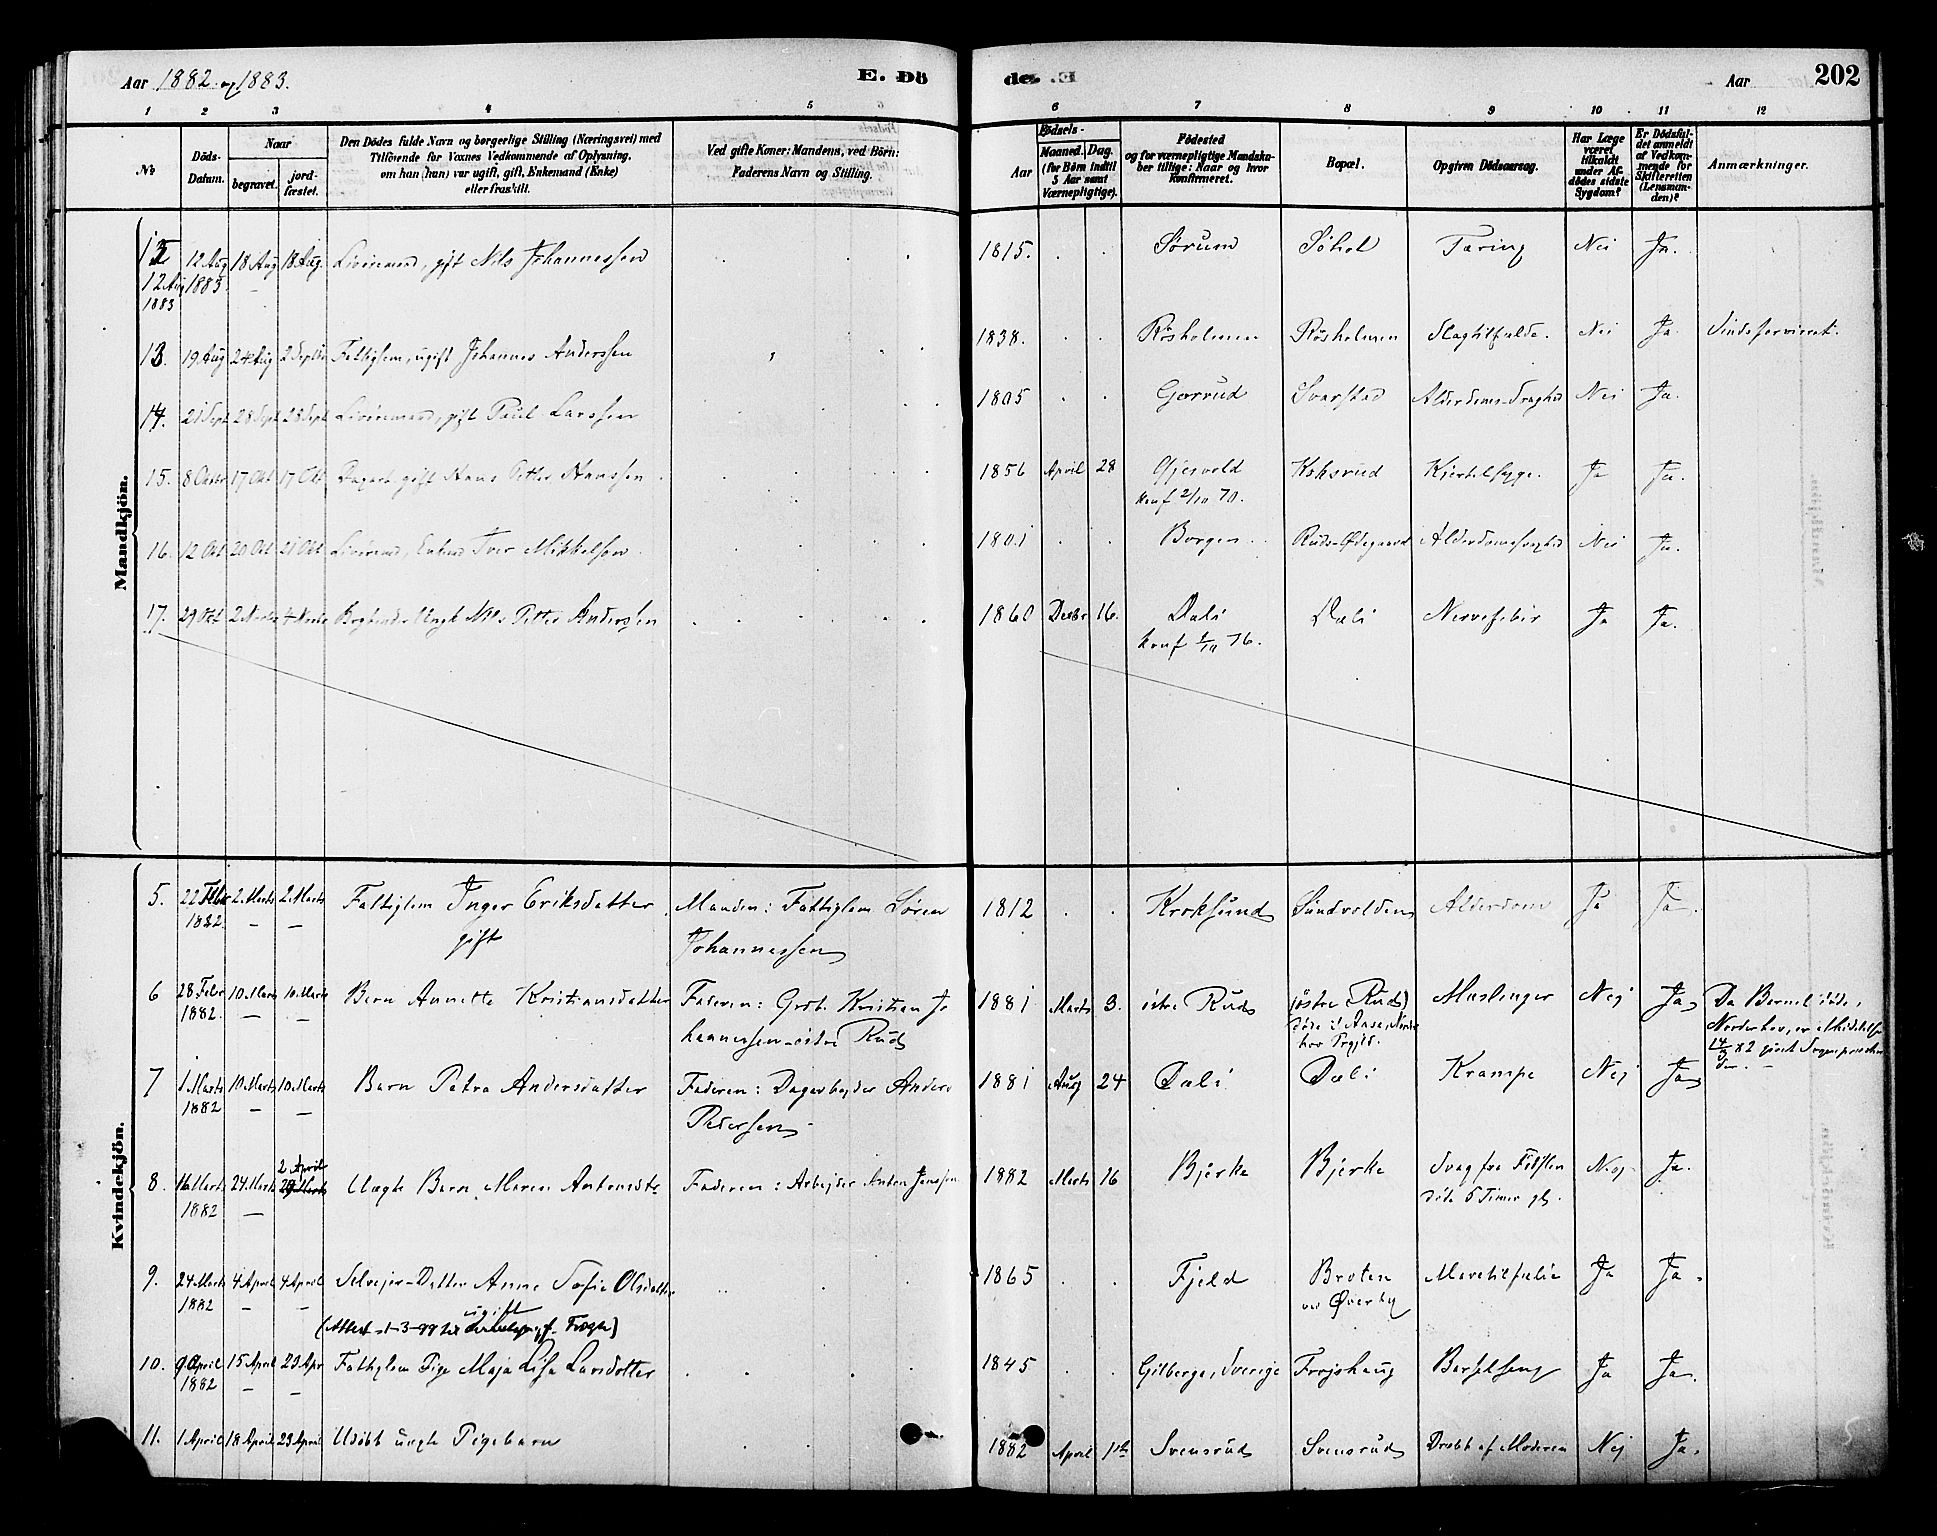 Aar 1882 og 1883.
E. Dö
de. E
Aar
202
1 2 3 4 5 6 7 8 9 10 11 12
No
Döds-Datum.
Naar
begravet.
jord-fæstet.
Den Dödes fulde Navn og borgerlige Stilling (Næringsvei) med
Tilföiende for Voxnes Vedkommende af Oplysning,
om han (hun) var ugift, gift, Enkemand (Enke)
eller fraskilt.
Ved gifte Koner: Mandens, ved Börn:
Faderens Navn og Stilling.
Födsels-
Aar
Maaned. Dag.
(for Börn indtil
5 Aar samt
Værnepligtige).
Födested
og for værnepligtige Mandska-
ber tillige: Naar og hvor
konfirmeret.
Bopæl.
Opgiven Dödsaarsag.
Har Læge
været
tilkaldt
under Af-
dödes sidste
Sygdom?
Er Dödsfal-
det anmeldt
af Vedkom-
mende for
Skifteretten
(Lensman-
den)?
Anmærkninger.
Mandkjön.
12 12 Aug 1883 18 Aug 18 Aug. Livöremand, gift Nils Johannessen 1815. Sørum Søhol Tæring Nei Ja.
12 Aug
1883
13. 19 Aug 24 Aug 2 Septbr Fattiglem, ugift Johannes Anderssen 1838. Røsholmen Røsholmen Slagtilfælde. Nei Ja Sindsforvirret.
14. 21 Sept 28 Sept 28 Sept Livöremand, gift Paul Larssen 1805 Gørrud Svarstad Alderdoms-Svaghed Nei Ja.
15. 8 Octbr 17 Okt 17 Okt Dagarb. gift Hans Petter Hanssen 1856 April 28 Gjesvold Koksrud Kjertelsyge. Ja Ja.
konf 2/10 70.
16. 12 Okt 20 Okt 21 Okt Enkmd Iver Mikkelsen 1801 Borgen Ruds-Ødegaard Alderdomssvaghed Nei Ja.
17. 29 Okt 2 Novbr 4 Novbr Ungk Nils Petter Anderssen 1860 Decbr 16. Dæli Dæli Nervefeber Ja Ja.
konf 1/10 76.
Kvindekjön.
5. 22 Febr 2. Marts 2. Marts Fattiglem Inger Eriksdatter Manden: Fattiglem Sören 1812 Kroksund Sundvolden Alderdom Ja Ja.
1882 gift Johannessen
6 28 Febr 10 Marts 10. Marts Barn Annette Kristiansdatter Faderen: Grdb. Kristian Jo 1881 Marts 3. östre Rud östre Rud) Mæslinger Nej Ja Da Barnet döde i
1882. hannessen – östre Rud
7 1 Marts 10 Marts 10 Marts Barn Petra Andersdatter Faderen: Dagarbejder Anders 1881 Aug 24 Dæli Dæli Krampe Nej Ja
1882 Pedersen
8. 16 Marts 24. Marts 2 April Uægte Barn Maren Antonsdtr Faderen: Arbejder Anton Jensen 1882 Marts 16 Bjerke Bjerke Svag fra Födslen Nej Ja.
1882 döde 5 Timer gl.
9. 24 Marts 4 April 4 April Selvejer-Datter Anne Sofie Olsdatter 1865 Fjeld Braten Ja Ja.
1882 ugift ved Øverby
(Attest 1-3-99
10. 9 April 15 April 23 Apr Fattiglem Pige Maja Lisa Larsdotter 1845 Gilberga, Sverige Frøjshaug Barselseng Ja Ja.
1882
11. 1 April 18 April 23 April Udöbt uægte Pigebarn 1882 April 1ste Svensrud Svensrud Dræbt af Moderen Nej Ja.